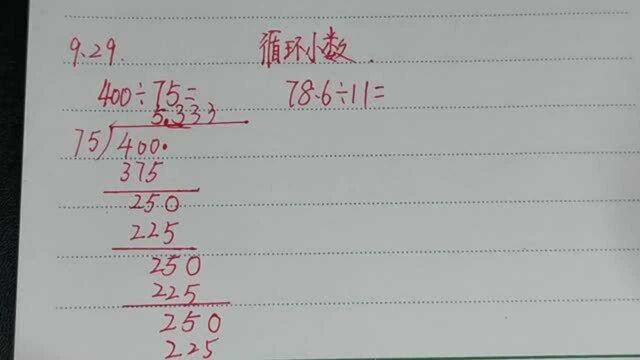 9.29. 循环小数
400÷75= 78.6÷11=
5.333
75)400.
375
250
225
250
225
250
225